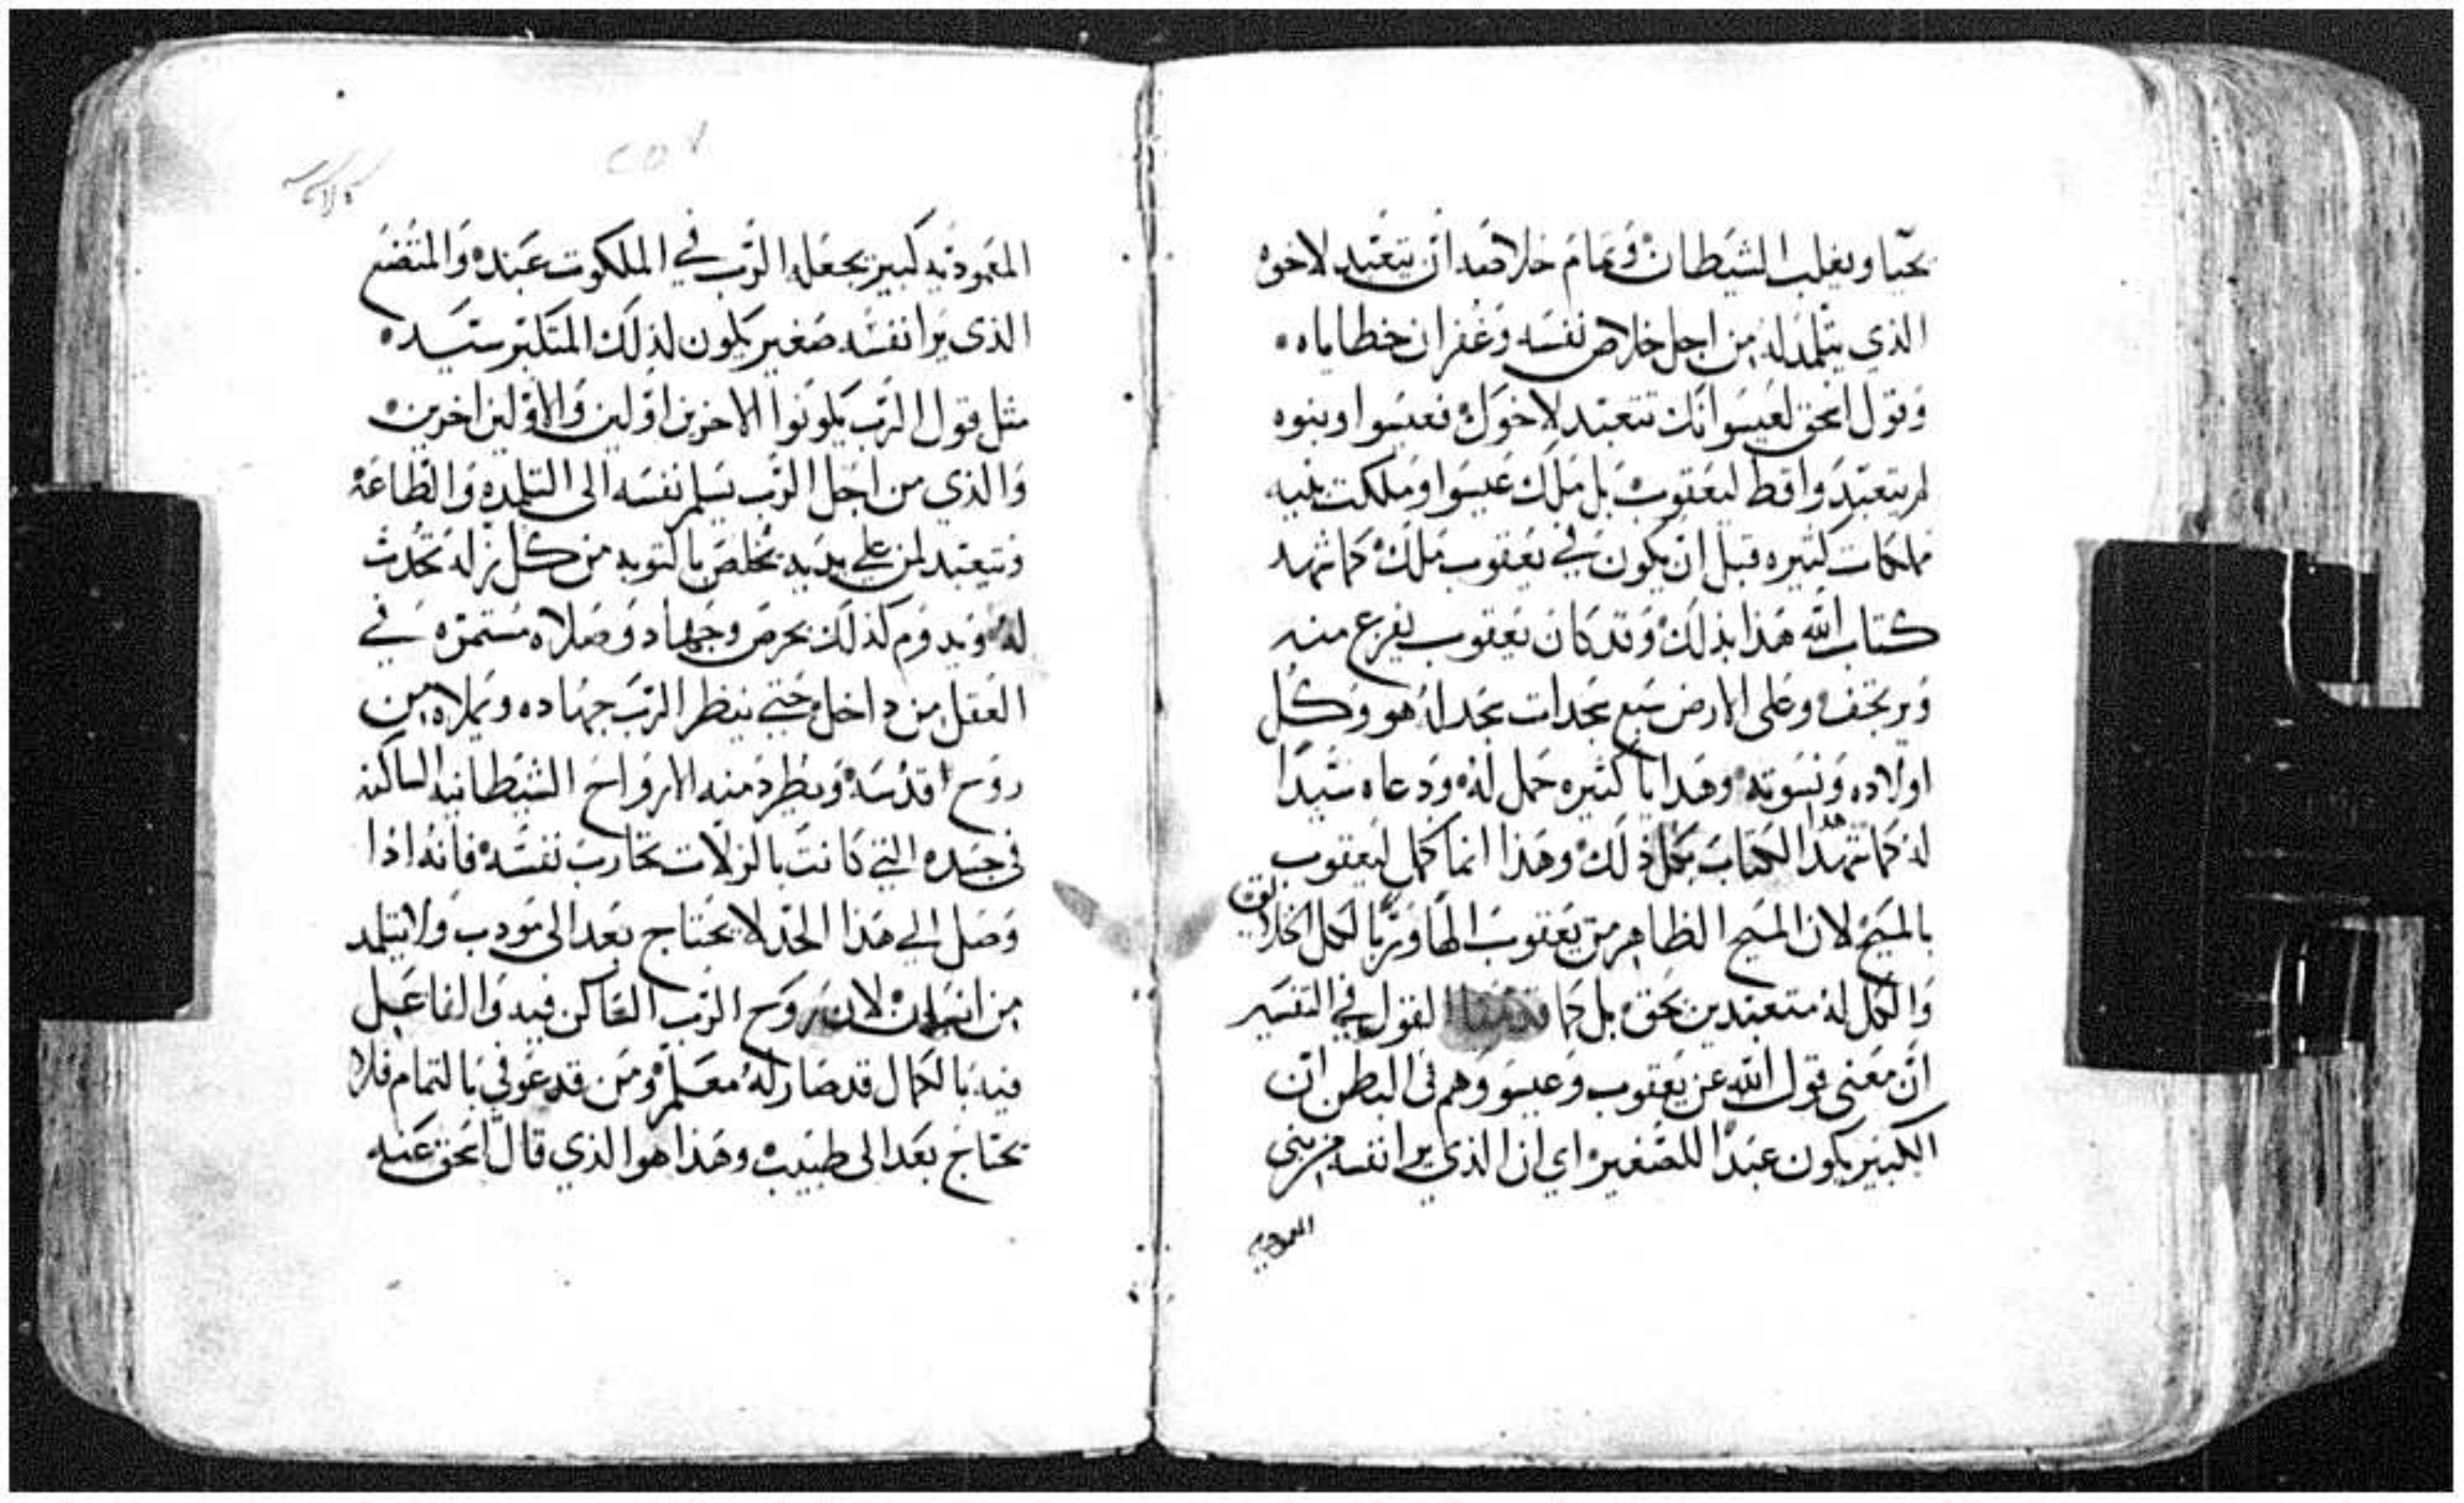 يحيا ويغلب الشيطان وتمام خلاصه ان يتعبد لاخوه
الذي يتلمد له من اجل خلاص نفسه وغفران خطاياه
وقول اسحق لعيسوا انك تتعبد لاخوك فعيسوا وبنوه
لم يتعبدوا قط ليعقوب بل ملك عيسوا وملكت بنيه
ملكات كثيره قبل ان يكون في يعقوب ملك كما شهد
كتاب الله هذا بذلك وقد كان يعقوب يفزع منه
ويرتجف وعلى الارض سبع سجدات سجد له هو وكل
اولاده ونسوته وهدايا كثيره حمل له ودعاه سيدا
له كما شهد هدا الكتاب بكل ذلك وهذا انما كمل ليعقوب
بالمسيح لان المسيح الظاهر من يعقوب الها وربا لكل الخلايق
والكل له متعبدين بحق بل كما قدمنا القول في التفسير
ان معنى قول الله عن يعقوب وعيسو وهم في البطن ان
الكبير يكون عبدا للصغير اي ان الذي يرا نفسه من بني
المعموديه
٢٥٧
المعموديه كبير يجعله الرب في الملكوت عبده والمتضع
الذي يرا نفسه صغير يكون لذلك المتكبر سيده
مثل قول الرب يكونوا الاخرين اولين والاولين اخرين
والذي من اجل الرب يسلم نفسه الى التلمده والطاعه
ويتعبد لمن على يديه يخلص بالتوبه من كل زله تحدث
له ويدوم كذلك بحرص وجهاد وصلاه مستمره في
العقل من داخل حتي ينظر الرب جهاده ويملاه من
روح اقدسه ويطرد منه الارواح الشيطانيه الساكنه
في جسده التي كانت بالزلات تحارب نفسه فانه اذا
وصل الي هذا الحد لا يحتاج بعد الى مودب ولا يتلمد
من انسان لان روح الرب الساكن فيه والفاعل
فيه بالكمال قد صار له معلم ومن قد عوفي بالتمام فلا
يحتاج بعد الى طبيب وهذا هوا الذي قال اسحق عنه